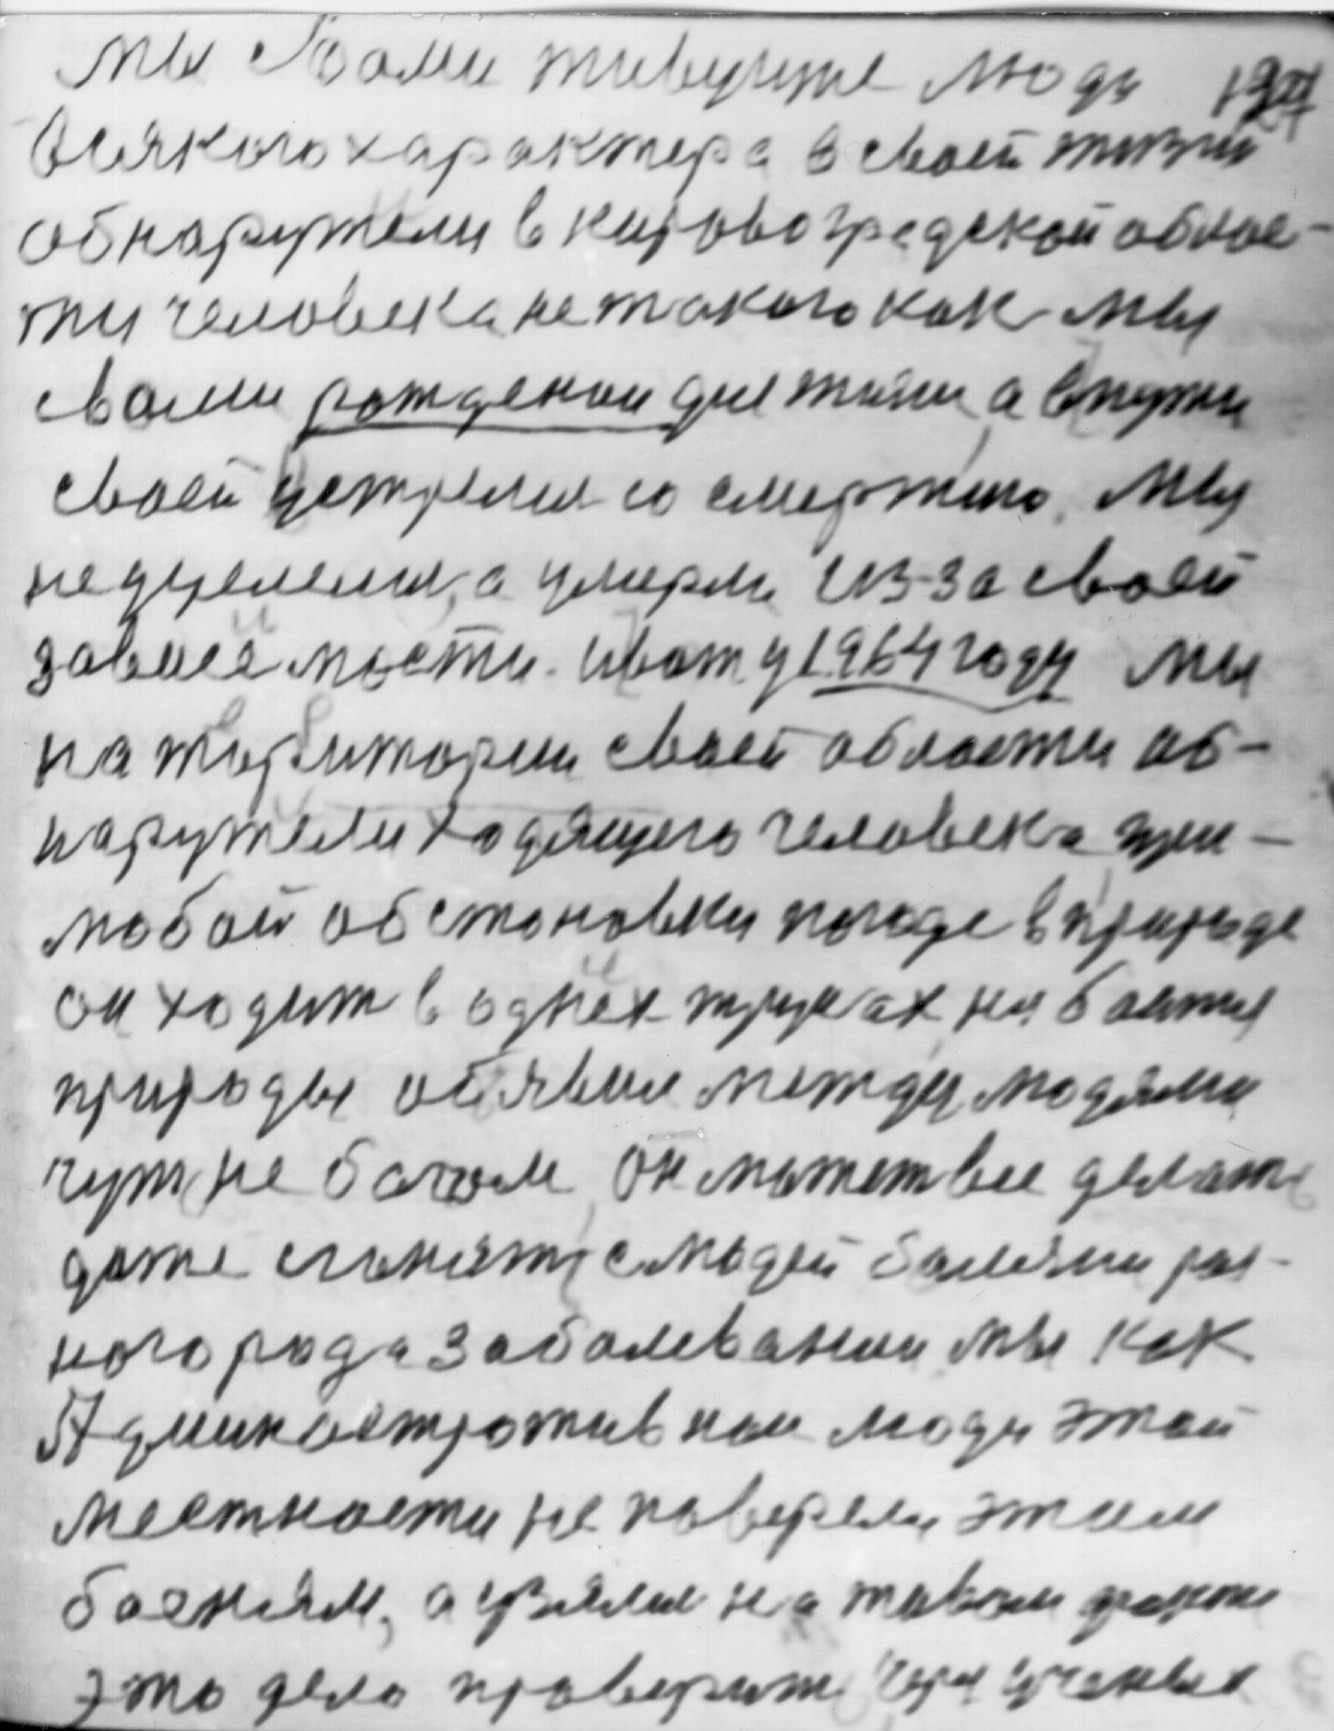 мы свами живущие люди
всякого характера в своей жизни
обнаружели в кировоградской облас-
ти человека нетакого как мы
свами рождении для жизни, а впутки
своей устрелил со смертию. Мы
недуумели, а умерли из-за своей
зависемности. ивот у 1964 году мы
на тыриторыи своей области об-
наружели ходящего человека при
любой обстоновки погоде в природе
он ходит в однех трусах не боится
природы обявил между людями
чуть не богом, он может все делать
даже сгонять с людей болями раз-
ного рода заболевании мы как
Админостротивнои люди этой
местности не поверели этим
басням, а узяли на живом факте
это дело проверить через ученых